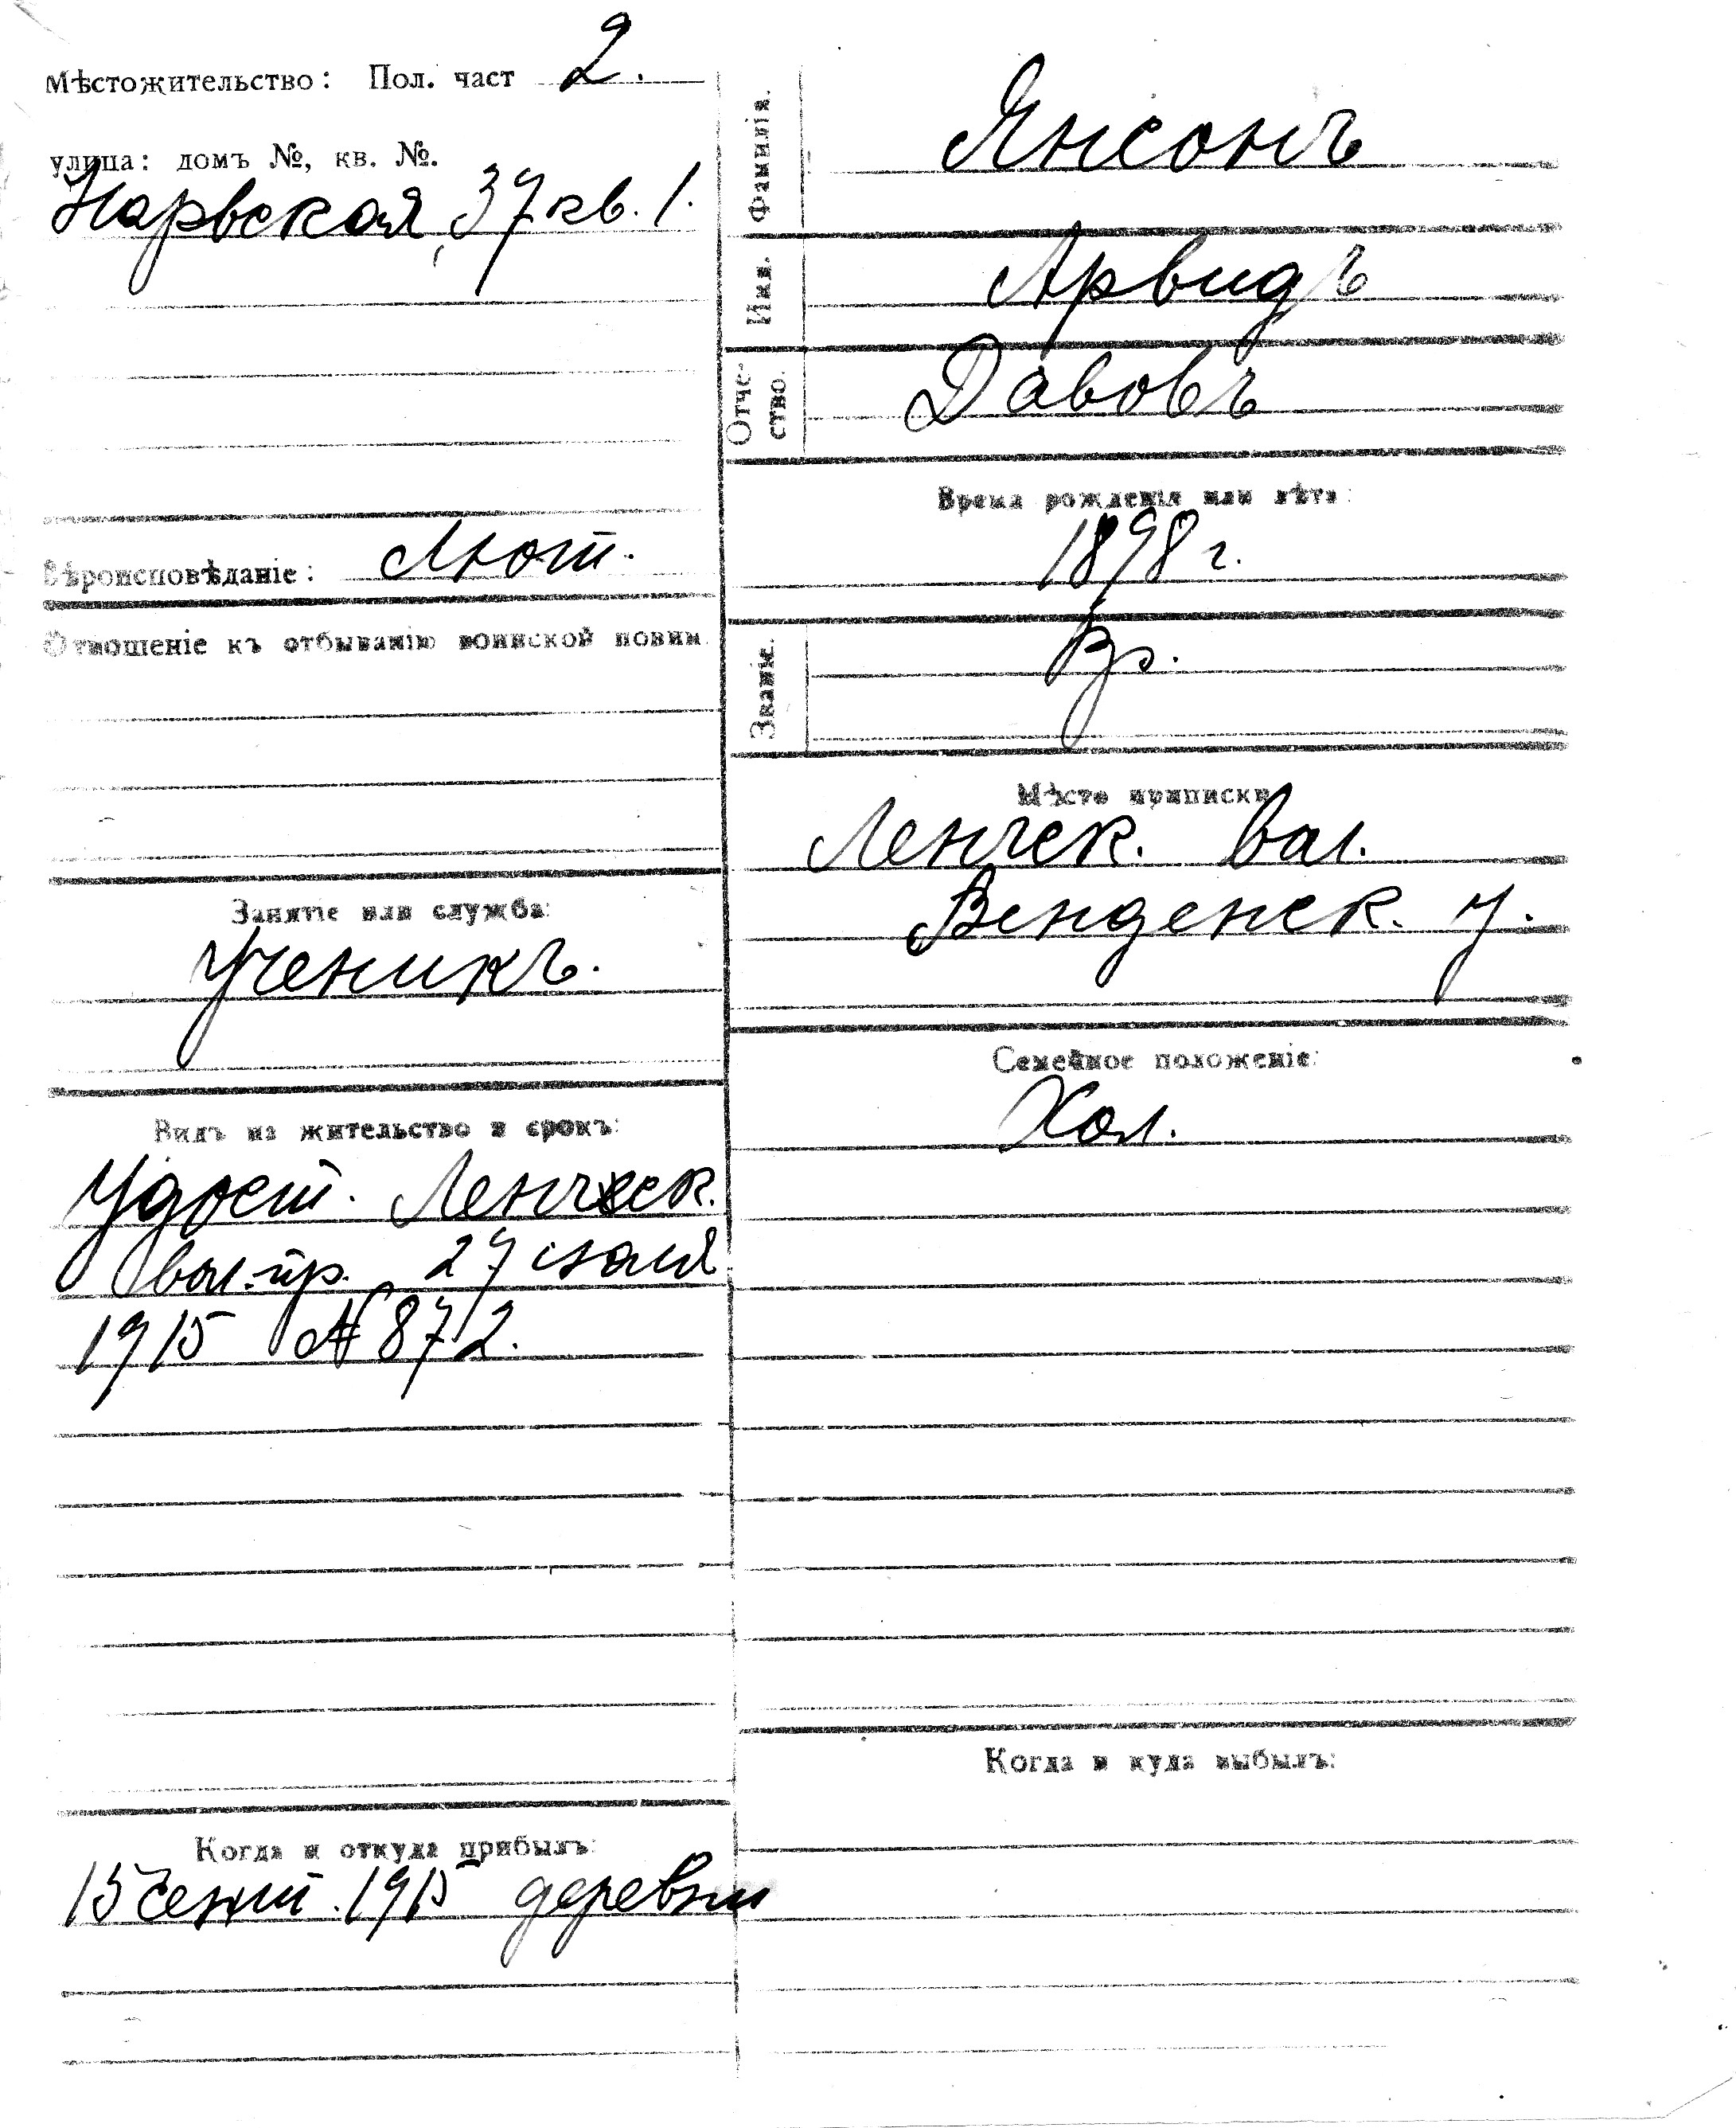 Мѣстожительство: Пол. част 2.
улица: домъ №, кв. №.
Нарвская, 37 кв. 1.
Вѣроисповѣданіе: Лют.
Отношеніе къ отбыванію воинской повин.
Занятіе или служба:
Ученикъ.
Видъ на жительство и срокъ:
Удост. Ленческ.
вол. пр. 27 июля
1915 № 872.
Когда и откуда прибылъ:
15 Сент. 1915 деревни
Фамилія.
Янсонъ
Имя.
Арвидъ
Отче-
ство.
Давовъ
Время рожденія или лѣта:
1898 г.
Званіе.
Кр.
Мѣсто приписки
Ленчек. вол.
Венденск. у.
Семейное положеніе:
Хол.
Когда и куда выбылъ: